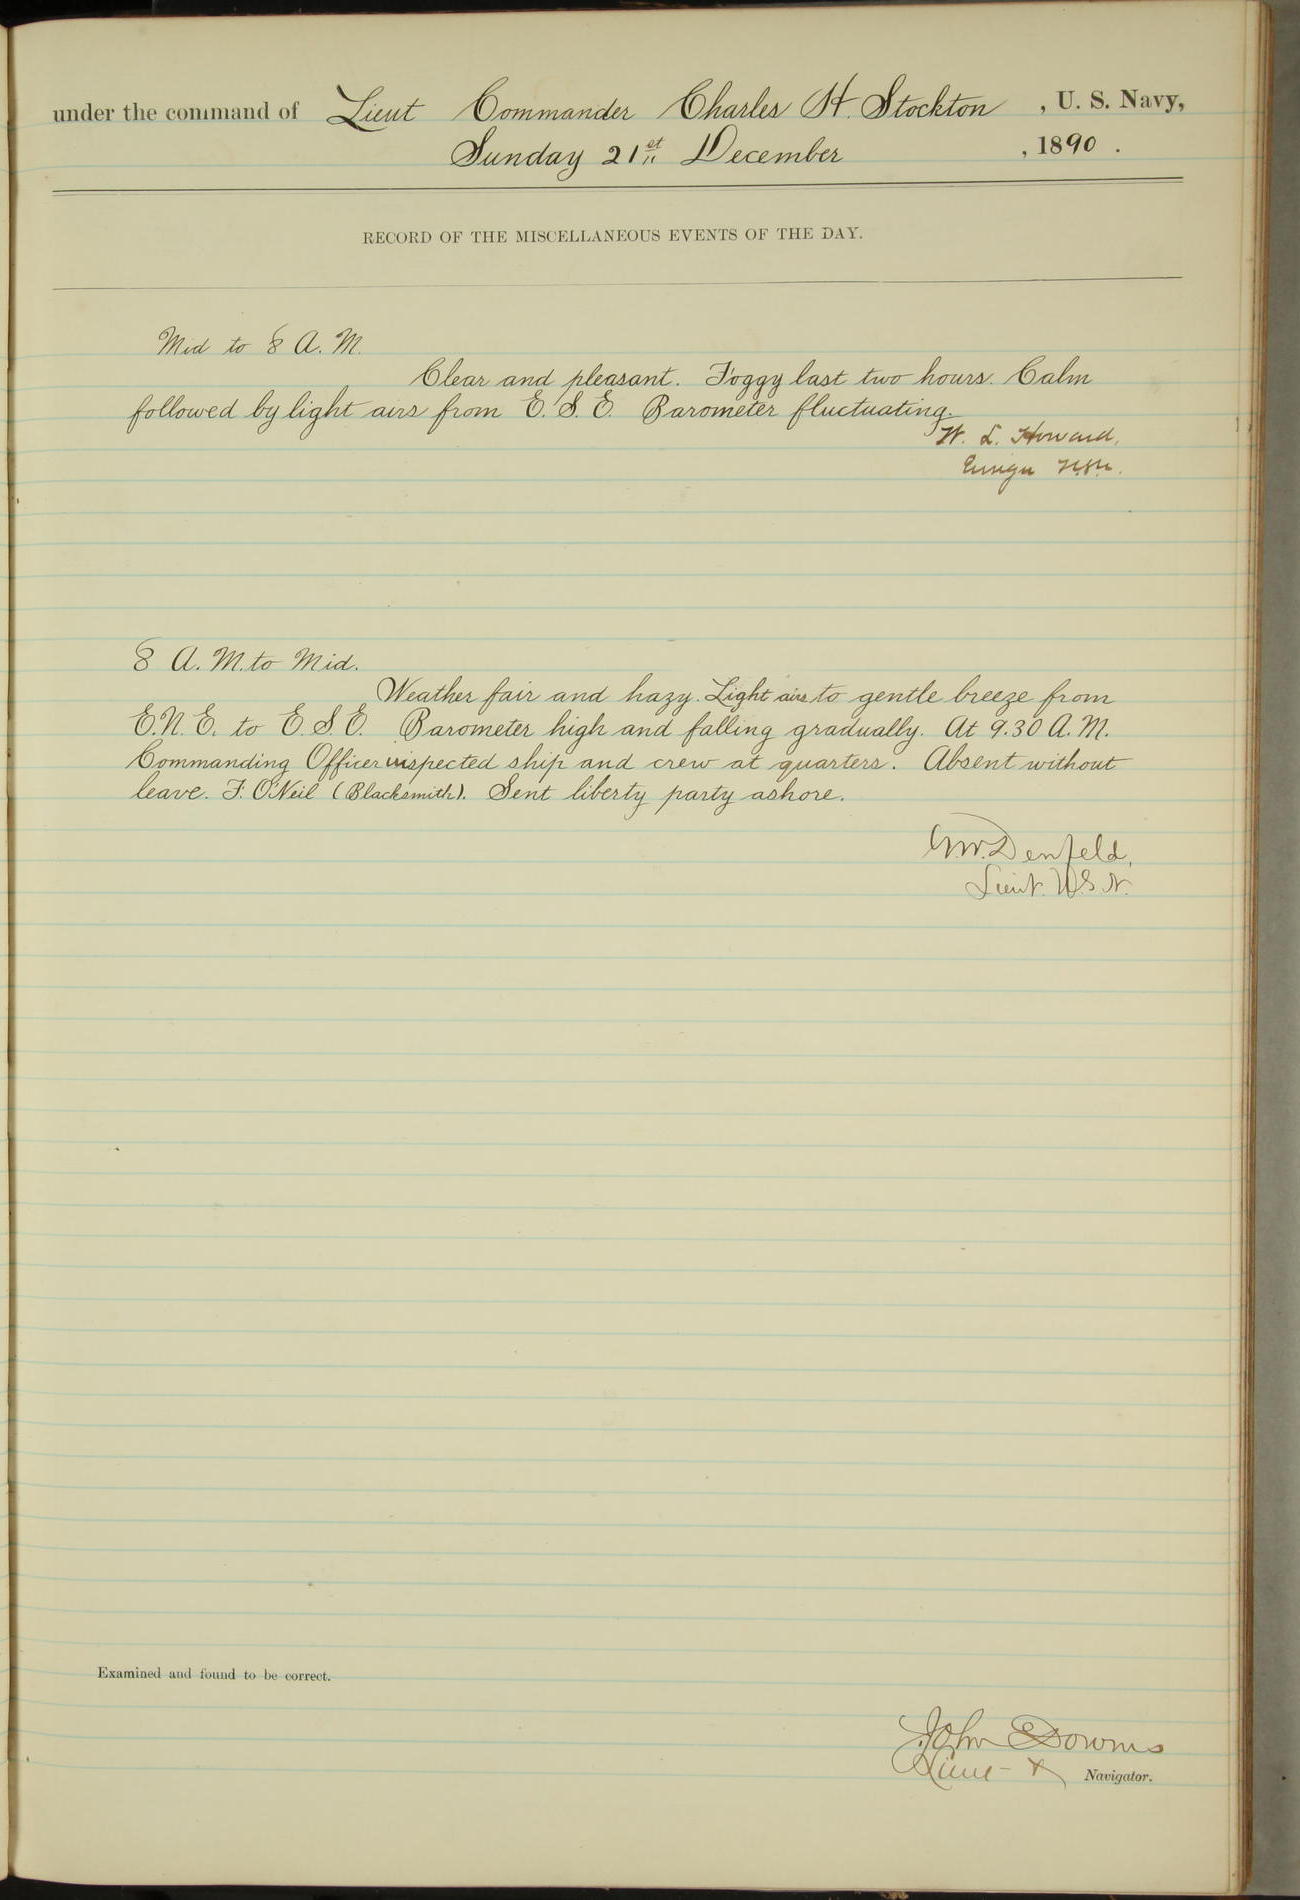 under the command of Lieut Commander Charles H. Stockton, U. S. Navy,
Sunday 21st December, 1890.
RECORD OF THE MISCELLANEOUS EVENTS OF THE DAY.
Mid to 8 A. M.
Clear and pleasant. Foggy last two hours. Calm
followed by light airs from E. S. E. Barometer fluctuating.
W. L. Howard,
Ensign U.S.N.
8 A. M. to Mid.
Weather fair and hazy. Light airs to gentle breeze from
E. N. E. to E. S. E. Barometer high and falling gradually. At 9.30 A. M.
Commanding Officer inspected ship and crew at quarters. Absent without
leave. F. O'Neil (Blacksmith). Sent liberty party ashore.
Denfeld,
Lieut. U.S.N.
Examined and found to be correct.
John Downes
Lieut - & Navigator.